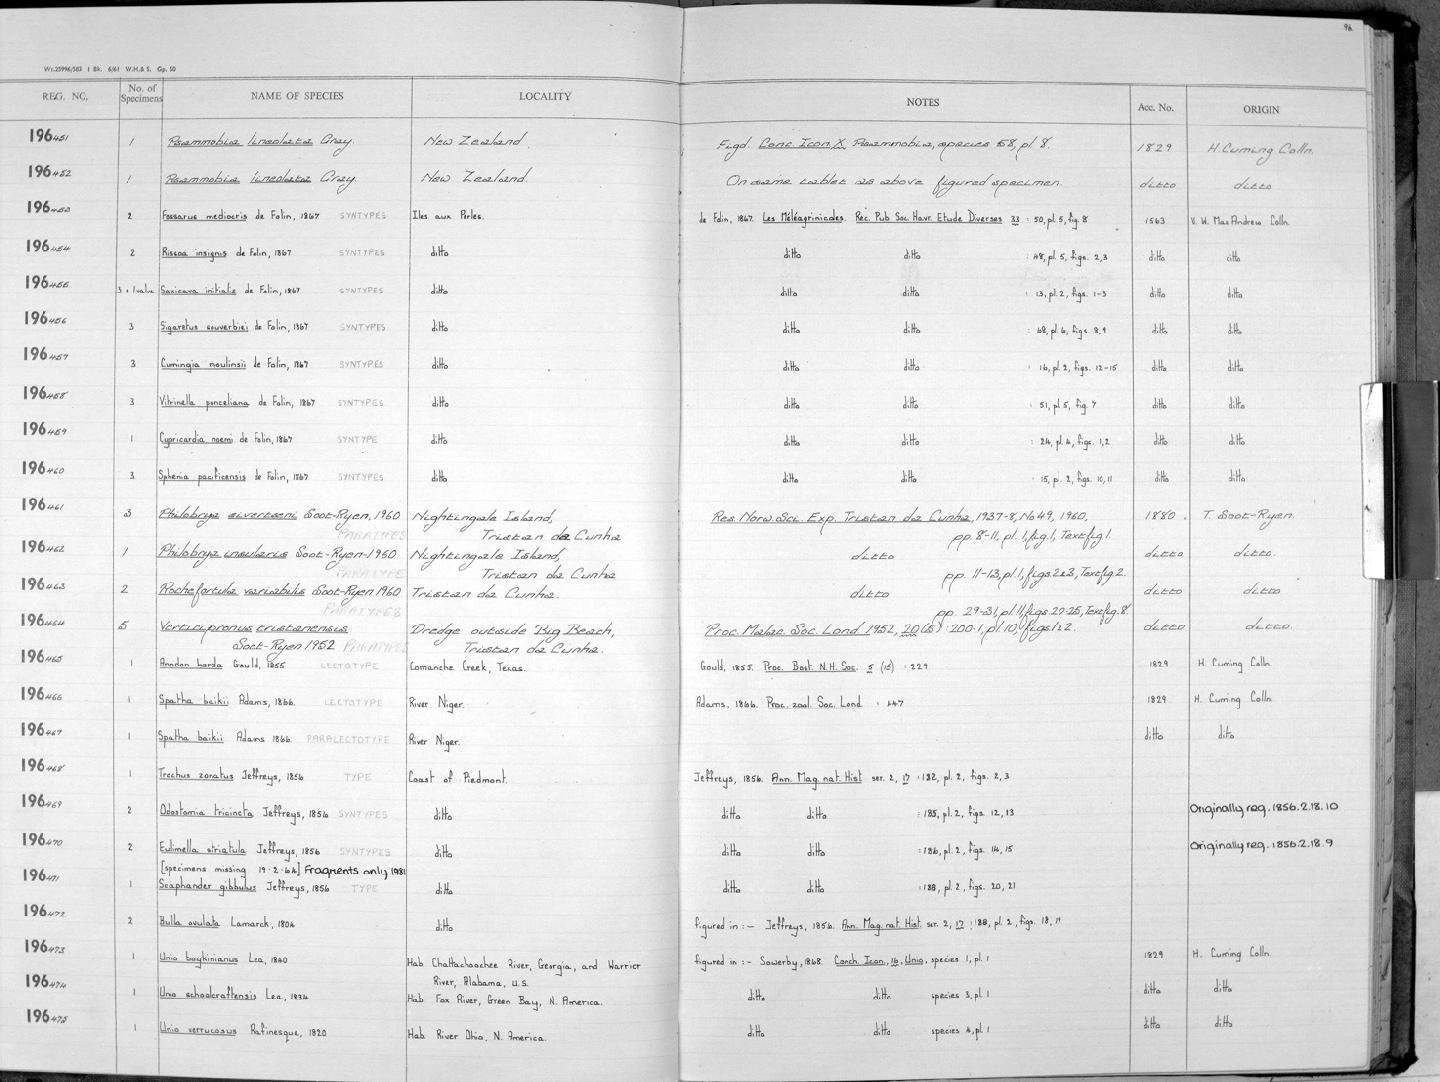 96
Wt.25996/583 1 Bk. 6/61 W.H.& S. Gp. 50
REG. NO. No. of Specimens NAME OF SPECIES LOCALITY NOTES Acc. No. ORIGIN
196451 1 Psammobia lineolata Gray. New Zealand. Figd. Conc. Icon. X Psammobia, species 58, pl. 8. 1829 H. Cuming Colln.
196452 1 Psammobia lineolata Gray New Zealand. On same tablet as above figured specimen. ditto ditto
196453 2 Fossarus mediocris de Folin, 1867 SYNTYPES Iles aux Perles. de Folin, 1867. Les Méléagrinicoles. Rec. Pub Soc. Havr. Etude Diverses 33 : 50, pl. 5, fig. 8 1563 V. W. MacAndrew Colln.
196454 2 Rissoa insignis de Folin, 1867 SYNTYPES ditto ditto ditto : 48, pl. 5, figs. 2,3 ditto ditto
196455 3 + 1 valve Saxicava initialis de Folin, 1867 SYNTYPES ditto ditto ditto : 13, pl. 2, figs. 1-3 ditto ditto
196456 3 Sigaretus souverbiei de Folin, 1867 SYNTYPES ditto ditto ditto : 68, pl. 6, figs. 8,9 ditto ditto
196457 3 Cumingia moulinsii de Folin, 1867 SYNTYPES ditto ditto ditto : 16, pl. 2, figs. 12-15 ditto ditto
196458 3 Vitrinella ponceliana de Folin, 1867 SYNTYPES ditto ditto ditto : 51, pl 5, fig. 7 ditto ditto
196459 1 Cypricardia noemi de Folin, 1867 SYNTYPE ditto ditto ditto : 24, pl. 4, figs. 1,2 ditto ditto
196460 3 Sphenia pacificensis de Folin, 1867 SYNTYPES ditto ditto ditto : 15, pl. 2, figs. 10, 11 ditto ditto
196461 3 Philobrya sivertseni Soot-Ryen, 1960 Nightingale Island, Res. Norw. Sci. Exp. Tristan da Cunha, 1937-8, No 49, 1960, 1880. T. Soot-Ryen.
PARATYPES Tristan da Cunha pp. 8-11, pl. 1, fig. 1, Textfig 1.
196462 1 Philobrya insularis Soot-Ryen-1960 Nightingale Island, ditto ditto ditto.
PARATYPE Tristan da Cunha pp. 11-13, pl. 1, figs. 2&3, Textfig. 2.
196463 2 Rochefortula variabilis Soot-Ryen 1960 Tristan da Cunha. ditto ditto ditto
PARATYPES pp. 29-31, pl. 11, figs 20-25, Textfig. 8
196464 5 Verticipronus tristanensis Dredge outside Big Beach, Proc. Malac. Soc. Lond 1952, 20(5) : 200-1, pl. 10, figs. 1 & 2. ditto ditto.
Soot-Ryen 1952 PARATYPES Tristan da Cunha.
196465 1 Anodon horda Gould, 1855 LECTOTYPE Comanche Creek, Texas. Gould, 1855. Proc. Bost. N.H. Soc. 5 (15) : 229 1829 H. Cuming Colln.
196466 1 Spatha baikii Adams, 1866. LECTOTYPE River Niger. Adams, 1866. Proc. zool. Soc. Lond. : 447 1829 H. Cuming Colln.
196467 1 Spatha baikii Adams 1866. PARALECTOTYPE River Niger. ditto ditto
196468 1 Trochus zonatus Jeffreys, 1856 TYPE Coast of Piedmont. Jeffreys, 1856. Ann. Mag. nat. Hist ser. 2, 17 : 182, pl. 2, figs. 2, 3
196469 2 Odostomia tricincta Jeffreys, 1856 SYNTYPES ditto ditto ditto : 185, pl. 2, figs. 12, 13 Originally reg. 1856.2.18.10
196470 2 Eulimella striatula Jeffreys, 1856 SYNTYPES ditto ditto ditto : 186, pl. 2, figs. 14, 15 Originally reg. 1856.2.18.9
[specimens missing 19.2.64] Fragments only 1981
196471 1 Scaphander gibbulus Jeffreys, 1856 TYPE ditto ditto ditto : 188, pl. 2, figs. 20, 21
196472 2 Bulla ovulata Lamarck, 1804 ditto figured in :- Jeffreys, 1856. Ann. Mag. nat. Hist. ser. 2, 17 : 188, pl. 2, figs. 18, 19
196473 1 Unio boykinianus Lea, 1840 Hab Chattachoochee River, Georgia, and Warrior figured in :- Sowerby, 1868. Conch. Icon., 16, Unio, species 1, pl. 1 1829 H. Cuming Colln.
River, Alabama, U.S.
196474 1 Unio schoolcraftensis Lea, 1834 Hab Fox River, Green Bay, N. America. ditto ditto species 3, pl. 1 ditto ditto
196475 1 Unio verrucosus Rafinesque, 1820 Hab River Ohio, N. America. ditto ditto species 4, pl. 1 ditto ditto